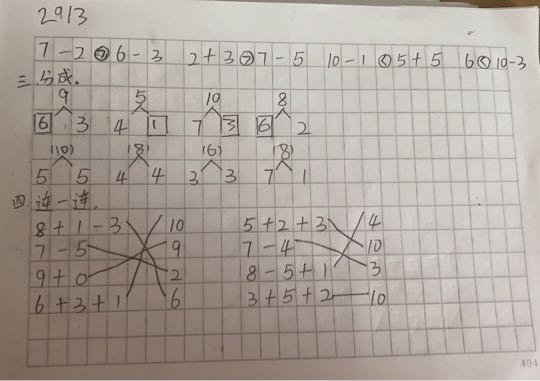 2913
7-2>6-3 2+3>7-5 10-1<5+5 6<10-3
三分成。
9 5 10 8
6 3 4 1 7 3 6 2
(10) (8) (6) (8)
5 5 4 4 3 3 7 1
四连一连。
8+1-3 10 5+2+3 4
7-5 9 7-4 10
9+0 2 8-5+1 3
6+3+1 6 3+5+2 10
404